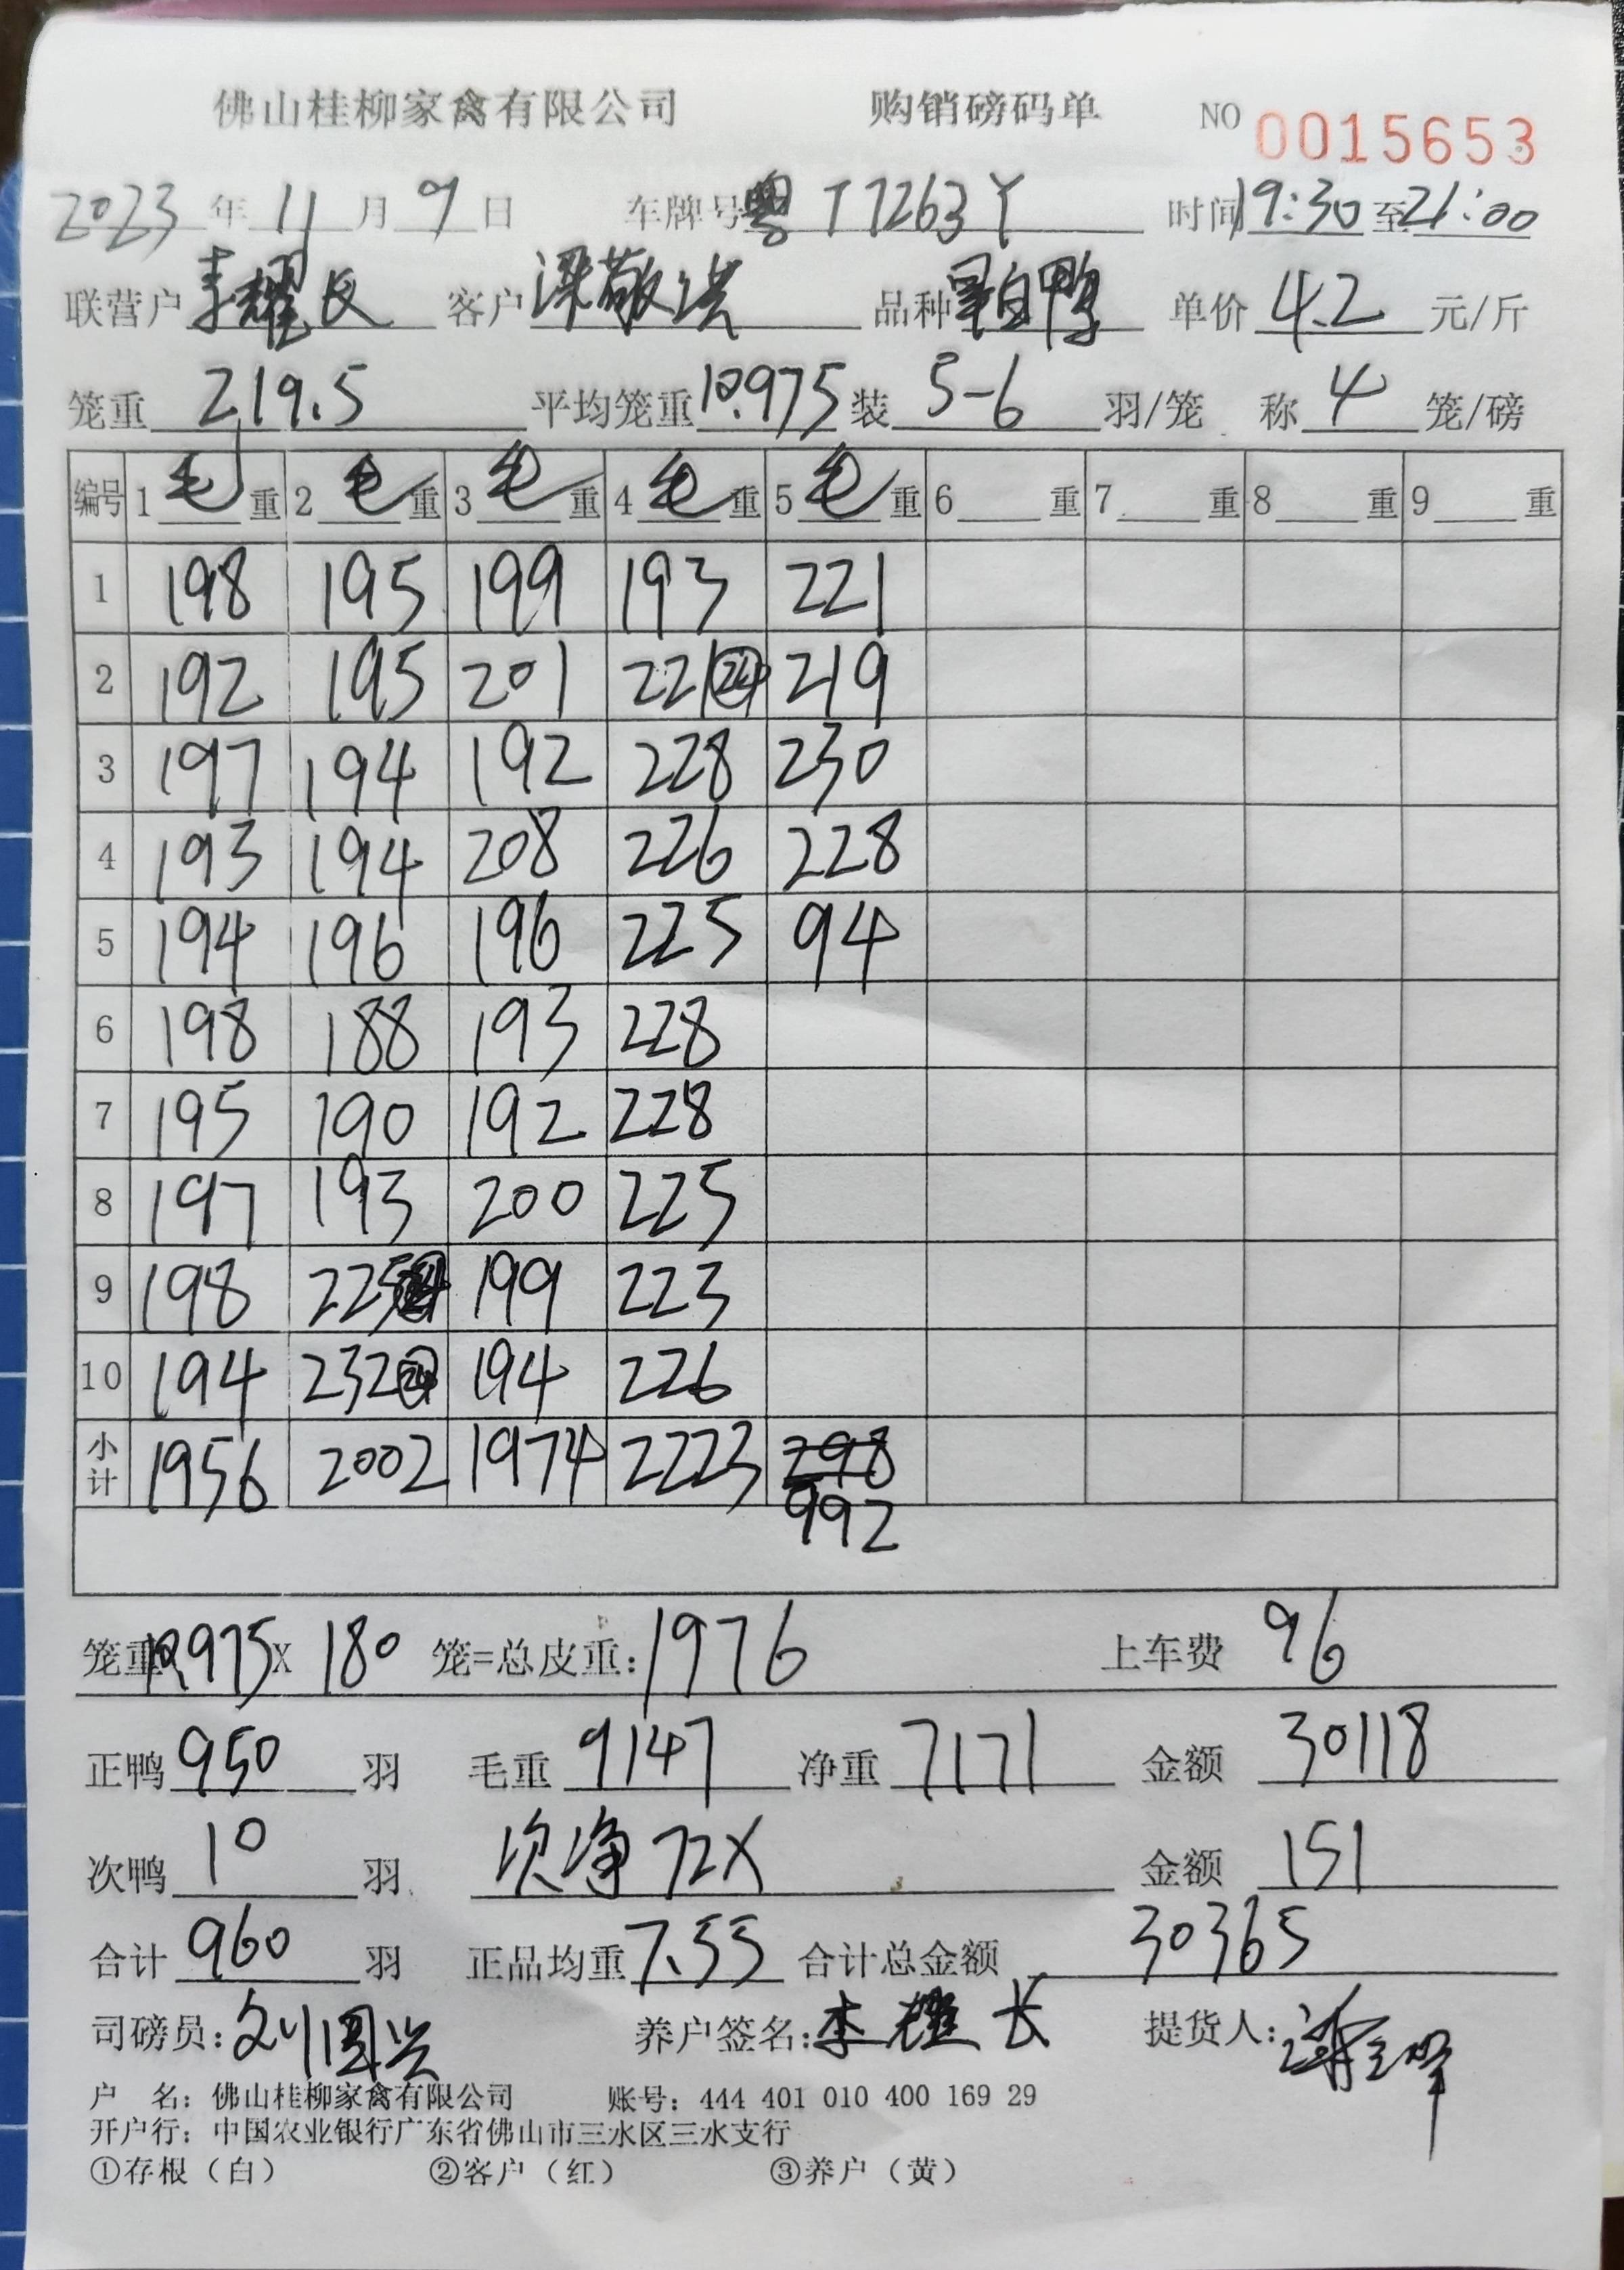 佛山桂柳家禽有限公司 购销磅码单 NO 0015653
2023年11月9日 车牌号粤T7263Y 时间19:30至21:00
联营户李耀长 客户梁敬洪 品种白鸭 单价4.2元/斤
笼重219.5 平均笼重10.975装5-6羽/笼 称4笼/磅
编号 1毛重 2毛重 3毛重 4毛重 5毛重 6重 7重 8重 9重
1 198 195 199 193 221
2 192 195 201 221㉔ 219
3 197 194 192 228 230
4 193 194 208 226 228
5 194 196 196 225 94
6 198 188 193 228
7 195 190 192 228
8 197 193 200 225
9 198 225 199 223
10 194 232㉔ 194 226
小计 1956 2002 1974 2223 298
992
笼重10.975X180笼=总皮重:1976 上车费96
正鸭950羽 毛重9147 净重7171 金额30118
次鸭10羽 次净72X 金额151
合计960羽 正品均重7.55 合计总金额30365
司磅员:刘国兴 养户签名:李耀长 提货人:
户 名:佛山桂柳家禽有限公司 账号:444 401 010 400 169 29
开户行:中国农业银行广东省佛山市三水区三水支行
①存根(白) ②客户(红) ③养户(黄)